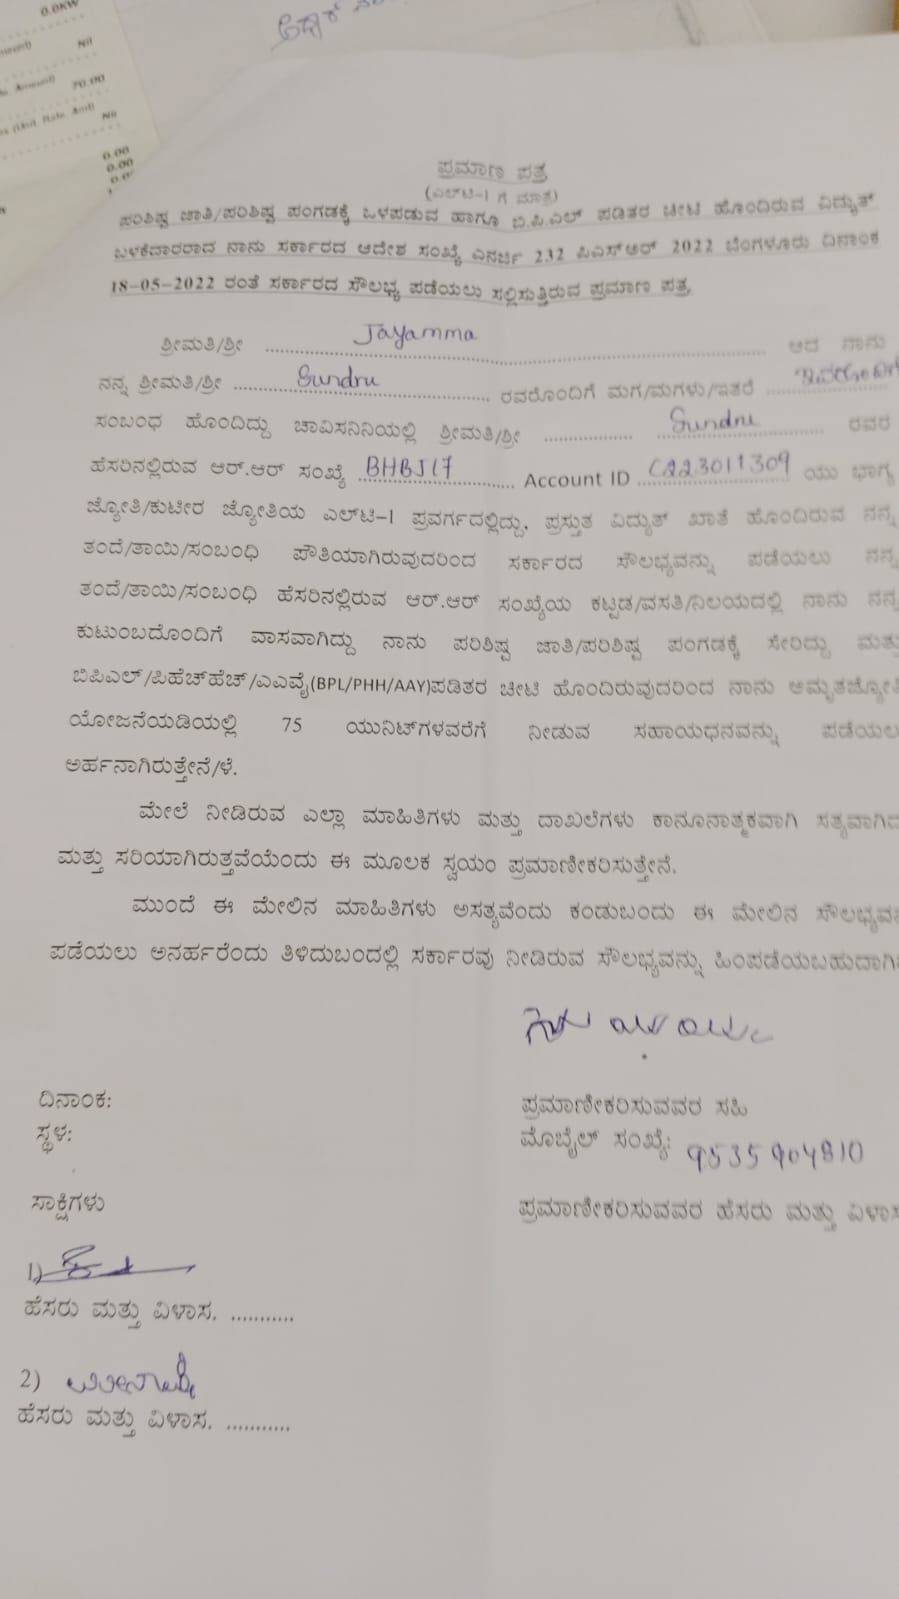 0.0KW
Nil
70.00
Nil
0.00
0.00
ಪ್ರಮಾಣ ಪತ್ರ
(ಎಲ್‌ಟಿ-1 ಗೆ ಮಾತ್ರ)
ಪರಿಶಿಷ್ಟ ಜಾತಿ/ಪರಿಶಿಷ್ಟ ಪಂಗಡಕ್ಕೆ ಒಳಪಡುವ ಹಾಗೂ ಬಿ.ಪಿ.ಎಲ್ ಪಡಿತರ ಚೀಟಿ ಹೊಂದಿರುವ ವಿದ್ಯುತ್
ಬಳಕೆದಾರರಾದ ನಾನು ಸರ್ಕಾರದ ಆದೇಶ ಸಂಖ್ಯೆ ಎನರ್ಜಿ 232 ಪಿಎಸ್ಆರ್ 2022 ಬೆಂಗಳೂರು ದಿನಾಂಕ
18-05-2022 ರಂತೆ ಸರ್ಕಾರದ ಸೌಲಭ್ಯ ಪಡೆಯಲು ಸಲ್ಲಿಸುತ್ತಿರುವ ಪ್ರಮಾಣ ಪತ್ರ
ಶ್ರೀಮತಿ/ಶ್ರೀ Jayamma ಆದ ನಾನು
ನನ್ನ ಶ್ರೀಮತಿ/ಶ್ರೀ Sundru ರವರೊಂದಿಗೆ ಮಗ/ಮಗಳು/ಇತರೆ
ಸಂಬಂಧ ಹೊಂದಿದ್ದು ಚಾವಿಸನಿನಿಯಲ್ಲಿ ಶ್ರೀಮತಿ/ಶ್ರೀ Sundru ರವರ
ಹೆಸರಿನಲ್ಲಿರುವ ಆರ್.ಆರ್ ಸಂಖ್ಯೆ BHBJ17 Account ID C223011309 ಯು ಭಾಗ್ಯ
ಜ್ಯೋತಿ/ಕುಟೀರ ಜ್ಯೋತಿಯ ಎಲ್‌ಟಿ-1 ಪ್ರವರ್ಗದಲ್ಲಿದ್ದು, ಪ್ರಸ್ತುತ ವಿದ್ಯುತ್ ಖಾತೆ ಹೊಂದಿರುವ ನನ್ನ
ತಂದೆ/ತಾಯಿ/ಸಂಬಂಧಿ ಪೌತಿಯಾಗಿರುವುದರಿಂದ ಸರ್ಕಾರದ ಸೌಲಭ್ಯವನ್ನು ಪಡೆಯಲು ನನ್ನ
ತಂದೆ/ತಾಯಿ/ಸಂಬಂಧಿ ಹೆಸರಿನಲ್ಲಿರುವ ಆರ್.ಆರ್ ಸಂಖ್ಯೆಯ ಕಟ್ಟಡ/ವಸತಿ/ನಿಲಯದಲ್ಲಿ ನಾನು ನನ್ನ
ಕುಟುಂಬದೊಂದಿಗೆ ವಾಸವಾಗಿದ್ದು ನಾನು ಪರಿಶಿಷ್ಟ ಜಾತಿ/ಪರಿಶಿಷ್ಟ ಪಂಗಡಕ್ಕೆ ಸೇರಿದ್ದು ಮತ್ತು
ಬಿಪಿಎಲ್/ಪಿಹೆಚ್‌ಹೆಚ್/ಎಎವೈ(BPL/PHH/AAY)ಪಡಿತರ ಚೀಟಿ ಹೊಂದಿರುವುದರಿಂದ ನಾನು ಅಮೃತಜ್ಯೋತಿ
ಯೋಜನೆಯಡಿಯಲ್ಲಿ 75 ಯುನಿಟ್‌ಗಳವರೆಗೆ ನೀಡುವ ಸಹಾಯಧನವನ್ನು ಪಡೆಯಲು
ಅರ್ಹನಾಗಿರುತ್ತೇನೆ/ಳೆ.
ಮೇಲೆ ನೀಡಿರುವ ಎಲ್ಲಾ ಮಾಹಿತಿಗಳು ಮತ್ತು ದಾಖಲೆಗಳು ಕಾನೂನಾತ್ಮಕವಾಗಿ ಸತ್ಯವಾಗಿದ
ಮತ್ತು ಸರಿಯಾಗಿರುತ್ತವೆಯೆಂದು ಈ ಮೂಲಕ ಸ್ವಯಂ ಪ್ರಮಾಣೀಕರಿಸುತ್ತೇನೆ.
ಮುಂದೆ ಈ ಮೇಲಿನ ಮಾಹಿತಿಗಳು ಅಸತ್ಯವೆಂದು ಕಂಡುಬಂದು ಈ ಮೇಲಿನ ಸೌಲಭ್ಯವನ
ಪಡೆಯಲು ಅನರ್ಹರೆಂದು ತಿಳಿದುಬಂದಲ್ಲಿ ಸರ್ಕಾರವು ನೀಡಿರುವ ಸೌಲಭ್ಯವನ್ನು ಹಿಂಪಡೆಯಬಹುದಾಗಿ
ದಿನಾಂಕ: ಪ್ರಮಾಣೀಕರಿಸುವವರ ಸಹಿ
ಸ್ಥಳ: ಮೊಬೈಲ್ ಸಂಖ್ಯೆ: 9535904810
ಸಾಕ್ಷಿಗಳು ಪ್ರಮಾಣೀಕರಿಸುವವರ ಹೆಸರು ಮತ್ತು ವಿಳಾಸ
1)
ಹೆಸರು ಮತ್ತು ವಿಳಾಸ. ...........
2)
ಹೆಸರು ಮತ್ತು ವಿಳಾಸ. ...........